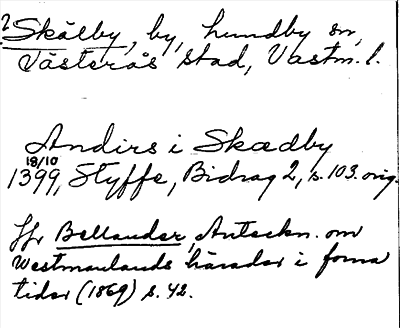 ? Skälby, by, Lundby sn,
Västerås stad, Vastm. l.
Andirs i Skædby
18/10
1399, Styffe, Bidrag 2, s. 103. orig.
Jfr Bellander, Anteckn. om
Westmanlands härader i forna
tider (1869) s. 42.